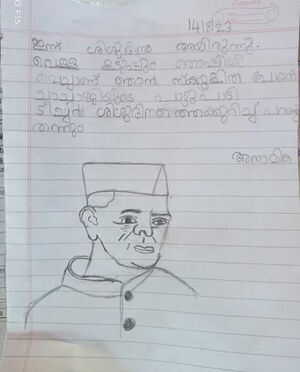 14/8/23
ഇന്ന് ശിശുദിനം ആയിരുന്നു.
വെള്ള
ഞാൻ സ്കൂളിൽ
ചാച്ചാജിയുടെ പാട്ടുപാടി
ടീച്ചർ ശിശുദിനത്തെക്കുറിച്ച് പറഞ്ഞു
തന്നു
അനാമിക